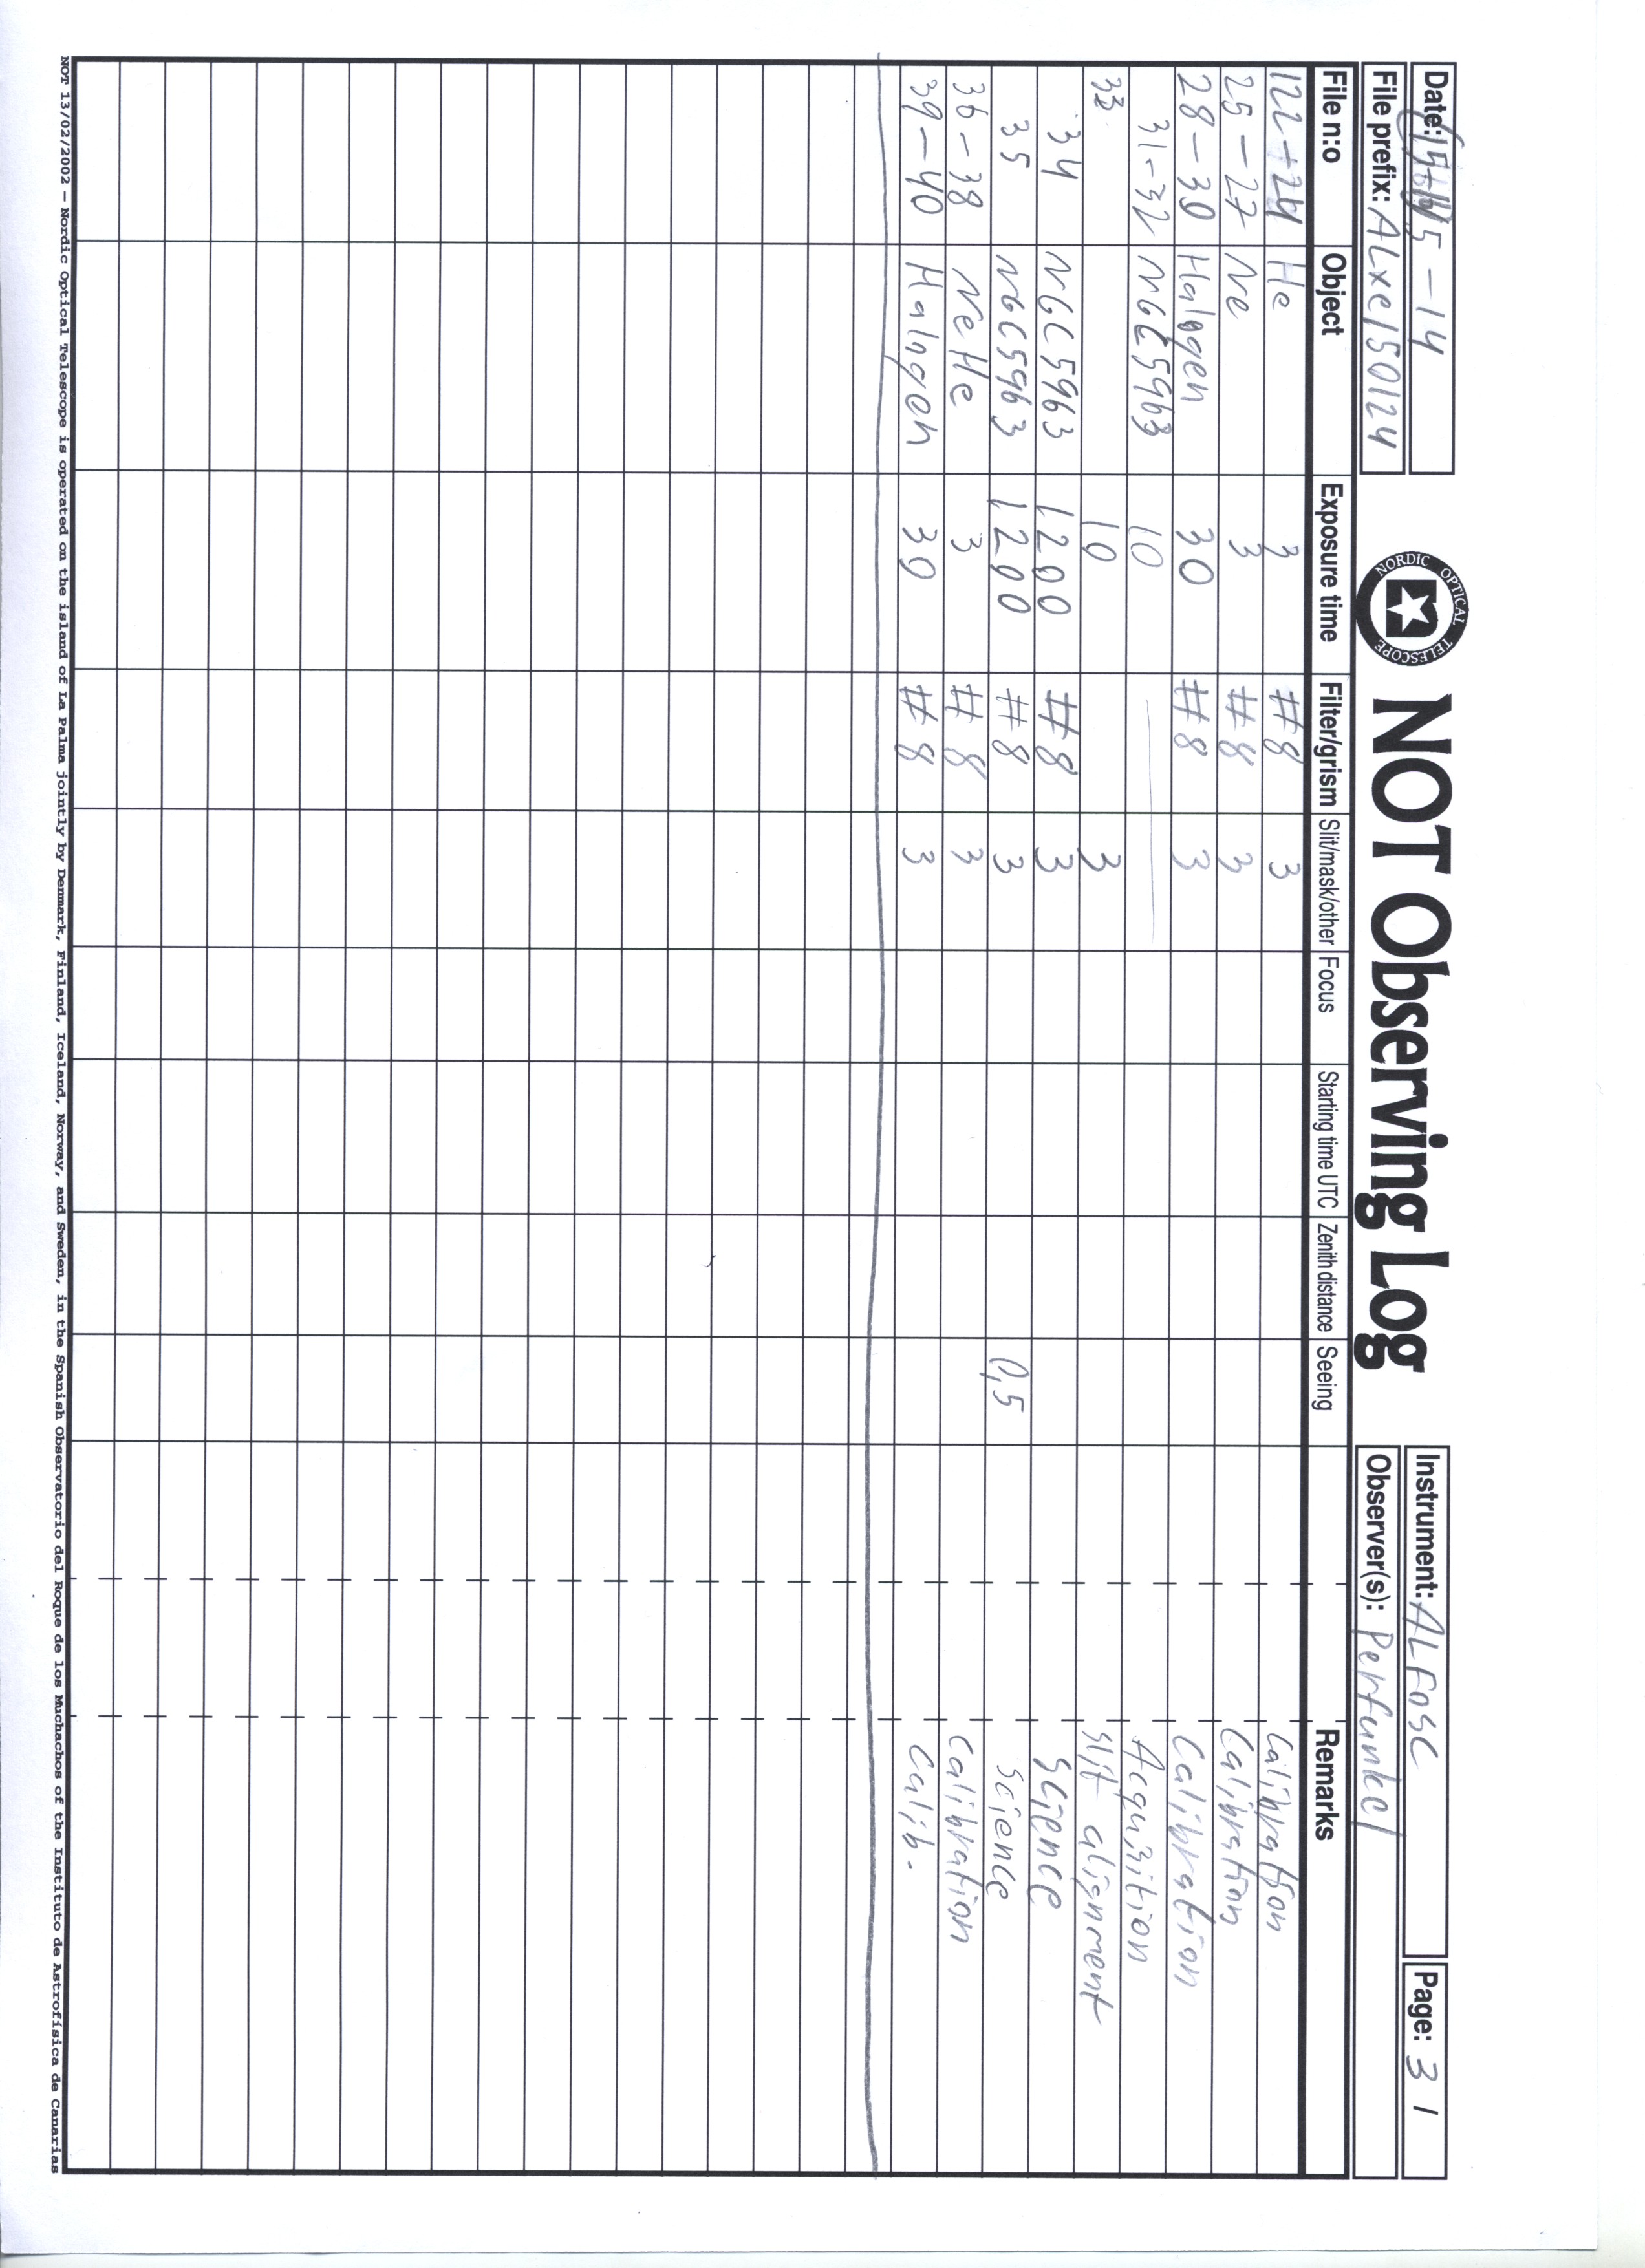 Date: 5-14
NORDIC OPTICAL TELESCOPE
NOT Observing Log
Instrument: ALFOSC
Page: 3 1
File prefix: ALxe150124
Observer(s): Perfunkel
File n:o Object Exposure time Filter/grism Slit/mask/other Focus Starting time UTC Zenith distance Seeing Remarks
122-124 He 3 #8 3 Calibration
25-27 Ne 3 #8 3 Calibration
28-30 Halogen 30 #8 3 Calibration
31-32 NGC5963 10 — Acquisition
33 10 3 Slit alignment
34 NGC5963 1200 #8 3 Science
35 NGC5963 1200 #8 3 0,5 Science
36-38 NeHe 3 #8 3 Calibration
39-40 Halogen 30 #8 3 Calib.
NOT 13/02/2002 - Nordic Optical Telescope is operated on the island of La Palma jointly by Denmark, Finland, Iceland, Norway, and Sweden, in the Spanish Observatorio del Roque de los Muchachos of the Instituto de Astrofisica de Canarias